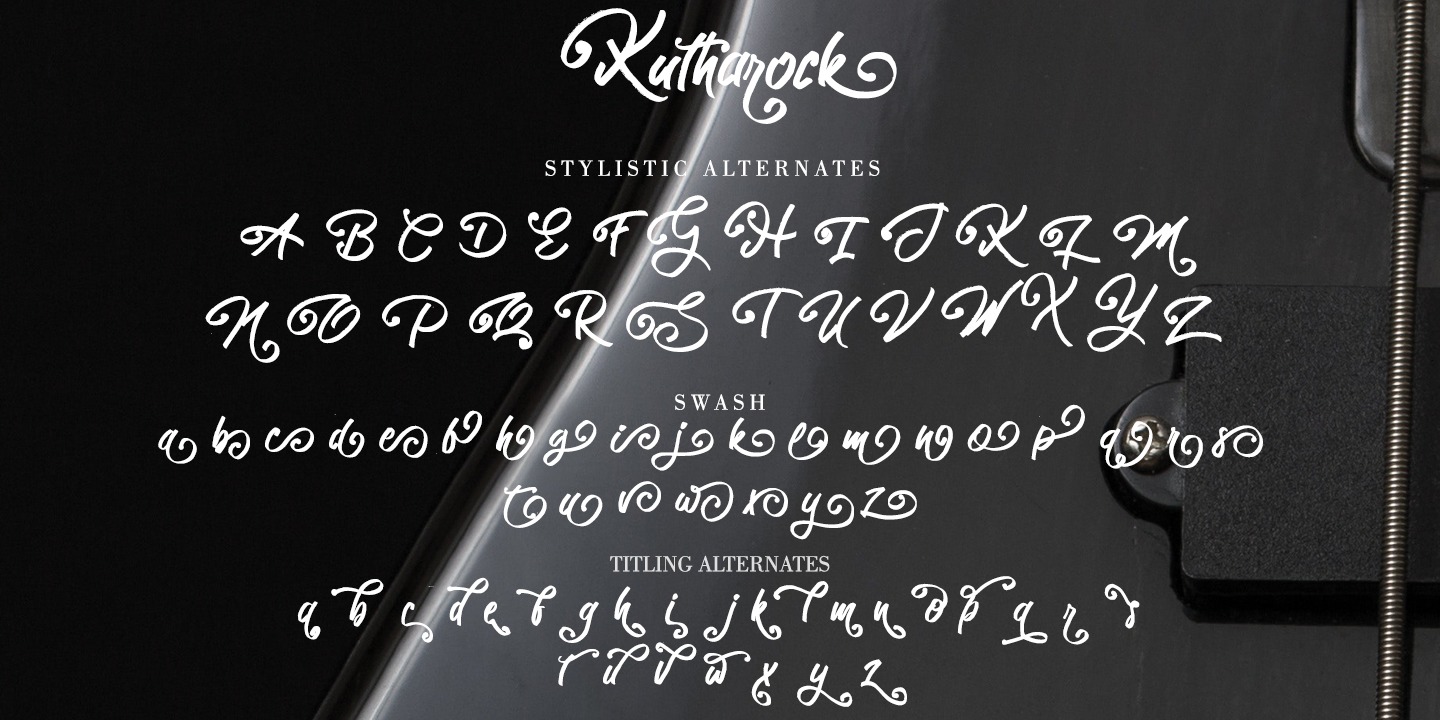 Kutharock
STYLISTIC ALTERNATES
A B C D E F G H I J K L M
N O P Q R S T U V W X Y Z
SWASH
a b c d e f h g i j k l m n o p q r s
t u v w x y z
TITLING ALTERNATES
a b c d e f g h i j k l m n o p q r s
t u v w x y z